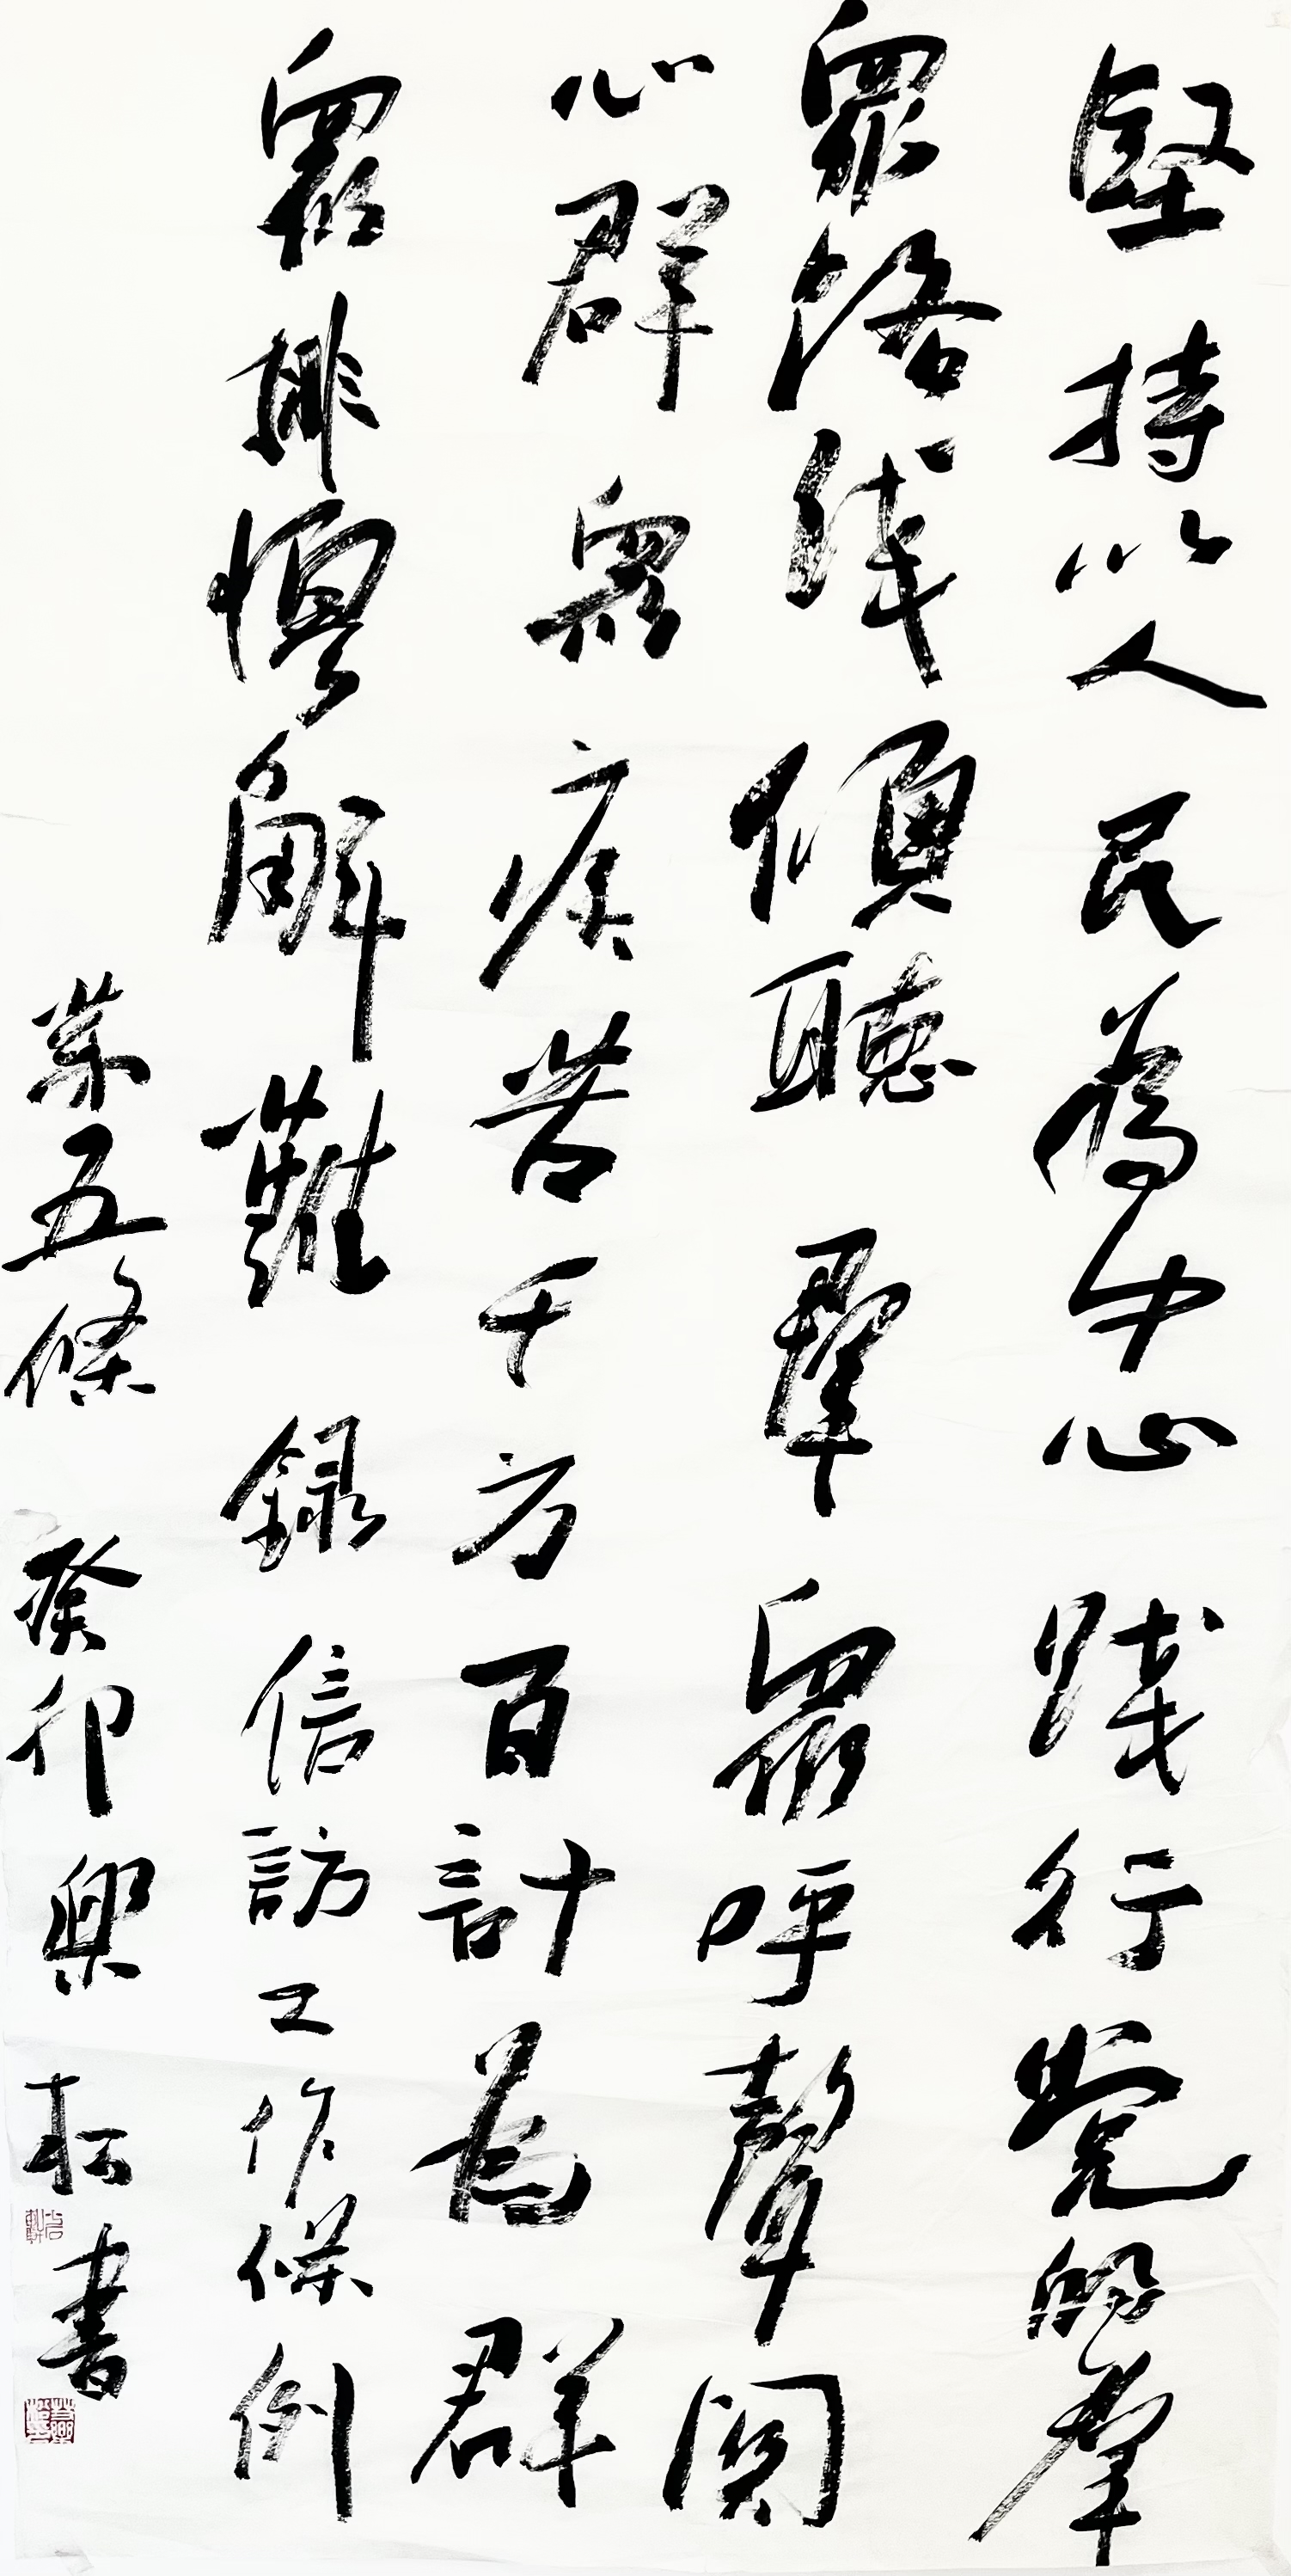 堅持以人民為中心踐行党的羣
眾路线傾聽羣眾呼聲関
心群眾疾苦千方百計為群
眾排憂解難録信訪工作條例
第五條癸卯樂松書